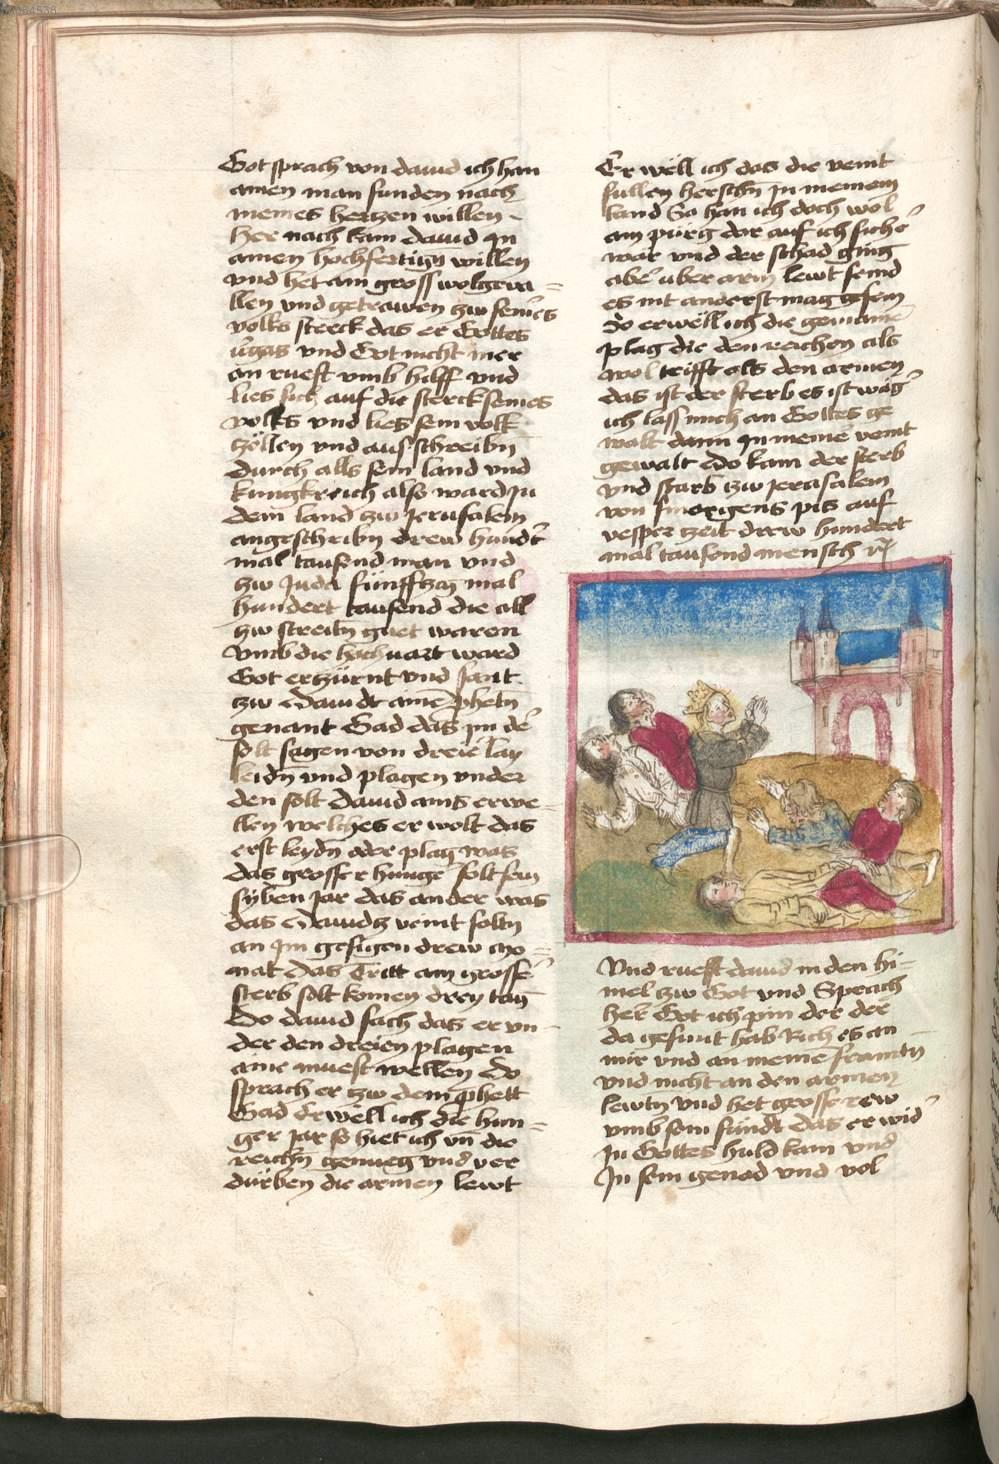 Got sprach von dauid ich han
ainen man funden nach
meines hertzen willen ~
Her nach kam dauid jn
ainen hochfertign willen
vnd het ain gross wolgeua =
llen vnd getrawen zw seines
volks sterck das er Gottes
vgas vnd Got nicht mer
an rueft vmb hilff vnd
lies sich auf die sterck seines
volks vnd lies sein volk
zellen vnd aus schreibn
durch alls sein land vnd
kungkreich also ward in
dem land zw Jerusalem
angeschribn drew hundt
mal tausend man vnd
zw Juda fünffczig mal
hundert tausend die all
zw streitn guet waren
vmb die hochuart ward
Got ertzürnt vnd sant
zw dauidt aine phetn
genant Gad das im de
solt sagen von dreie lay
leidn vnd plagen vnder
den solt dauid ains erwe =
llen welches er wolt das
erst leydn oder plag was
das grosse r hunge solt sein
syben jar das ander was
das dauidz veint soltn
an jm gesigen drew mo =
nat das Dritt ain grosse
sterb solt komen drey tag
Do dauid sach das er vn =
der den dreien plagen
aine muest wellen do
sprach er zw dem phett
Gad erwell ich die hun =
ger jar so hiet ich vn die
reichn genueg vnd ver
dürben die armen lewt
Er well ich das die veint
sullen herschn jn meinem
land So han ich doch wol
ain purg dar auf ich siche
war vnd der schad ging
abe uber arm lewt seind
es nit anderst mag gesein
So erwell ich die gemaine
plag die den reichen als
wol trifft als den armen
das ist der sterb es ist wag
ich lass mich an Gottes ge
walt dann jn meine veint
gewalt Do kam der sterb
vnd starb zw jerasalem
von smorigens pis auf
vesper zeit drew hundert
mal tausend mensch
Vnd rueft dauid in den hi =
mel zw Got vnd Sprach
her Got ich pin der der
da gesunt hab Rich es an
mir vnd an meine framtn
vnd nicht an den armen
lewtn vnd het grosse rew
vmb sein sündt das er wid
jn Gottes huld kam vnd
jn sein genad vnd vol